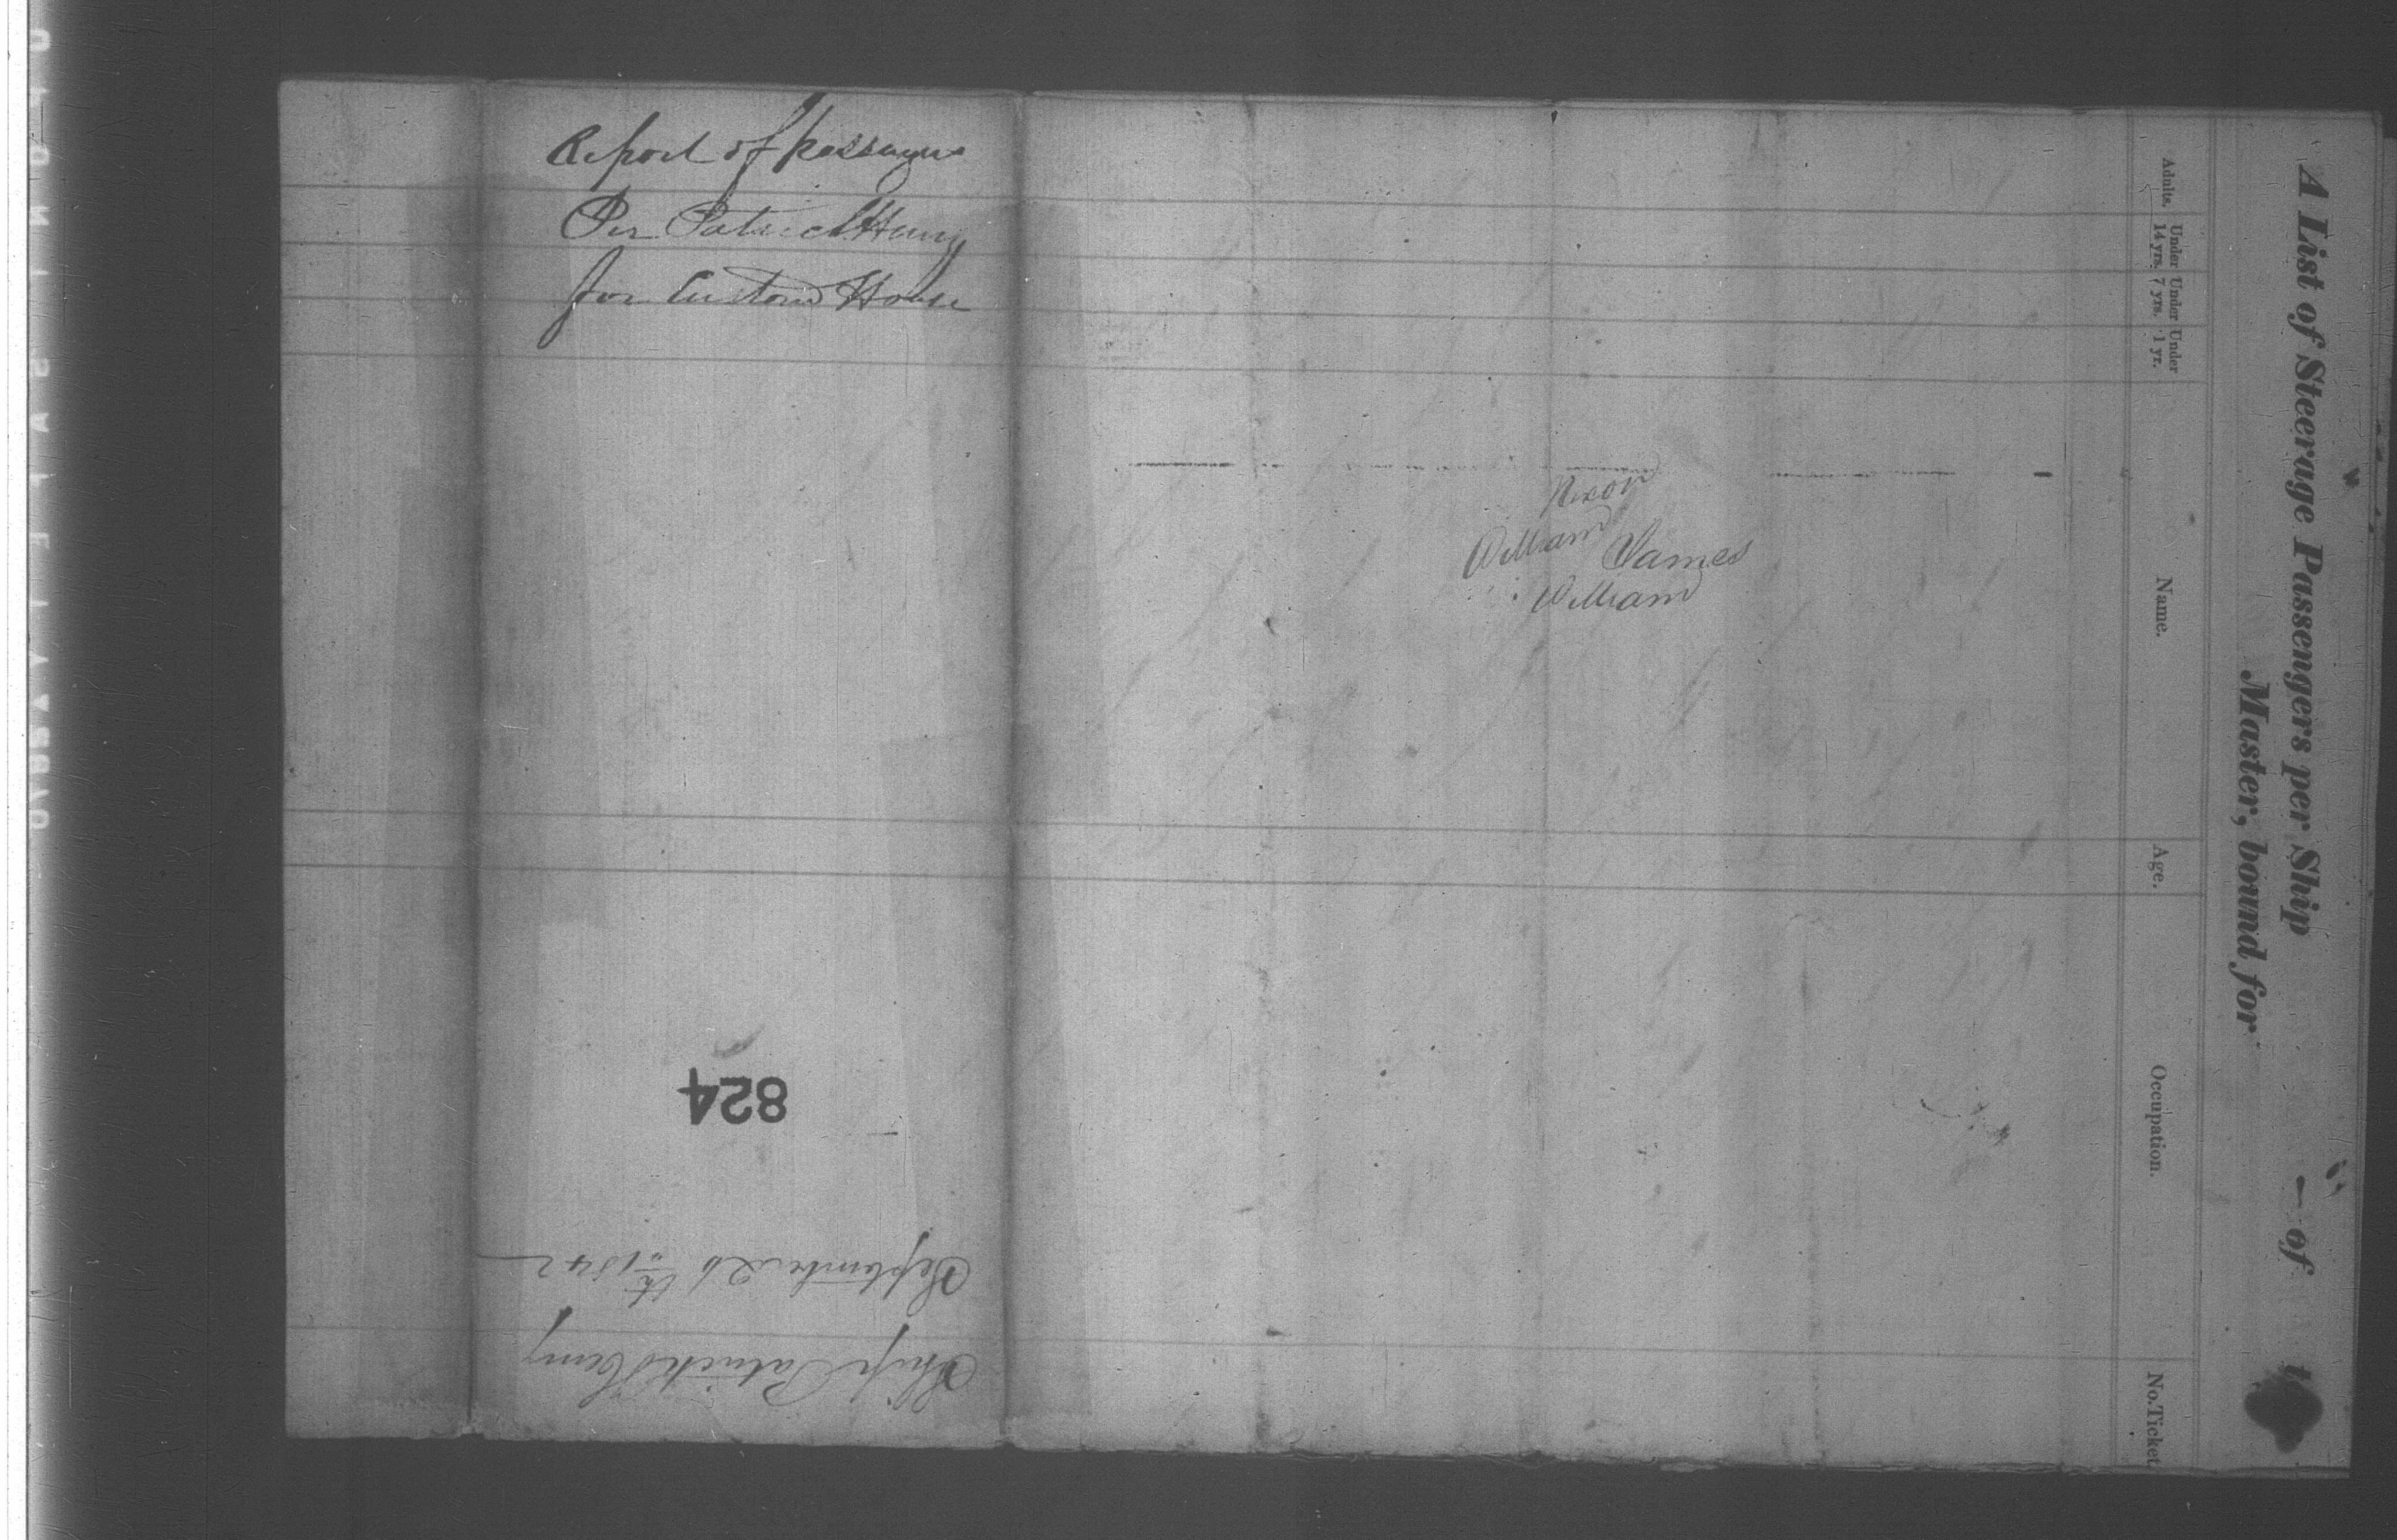 Report of passengers
Per Patrick Henry
for Custom House
Nixon
William
James
William
824
September 26th 1842
Ship Patrick Henry
A List of Steerage Passengers per Ship — of
Master, bound for
Adults. Under 14 yrs. Under 7 yrs. Under 1 yr. Name. Age. Occupation. No. Ticket.